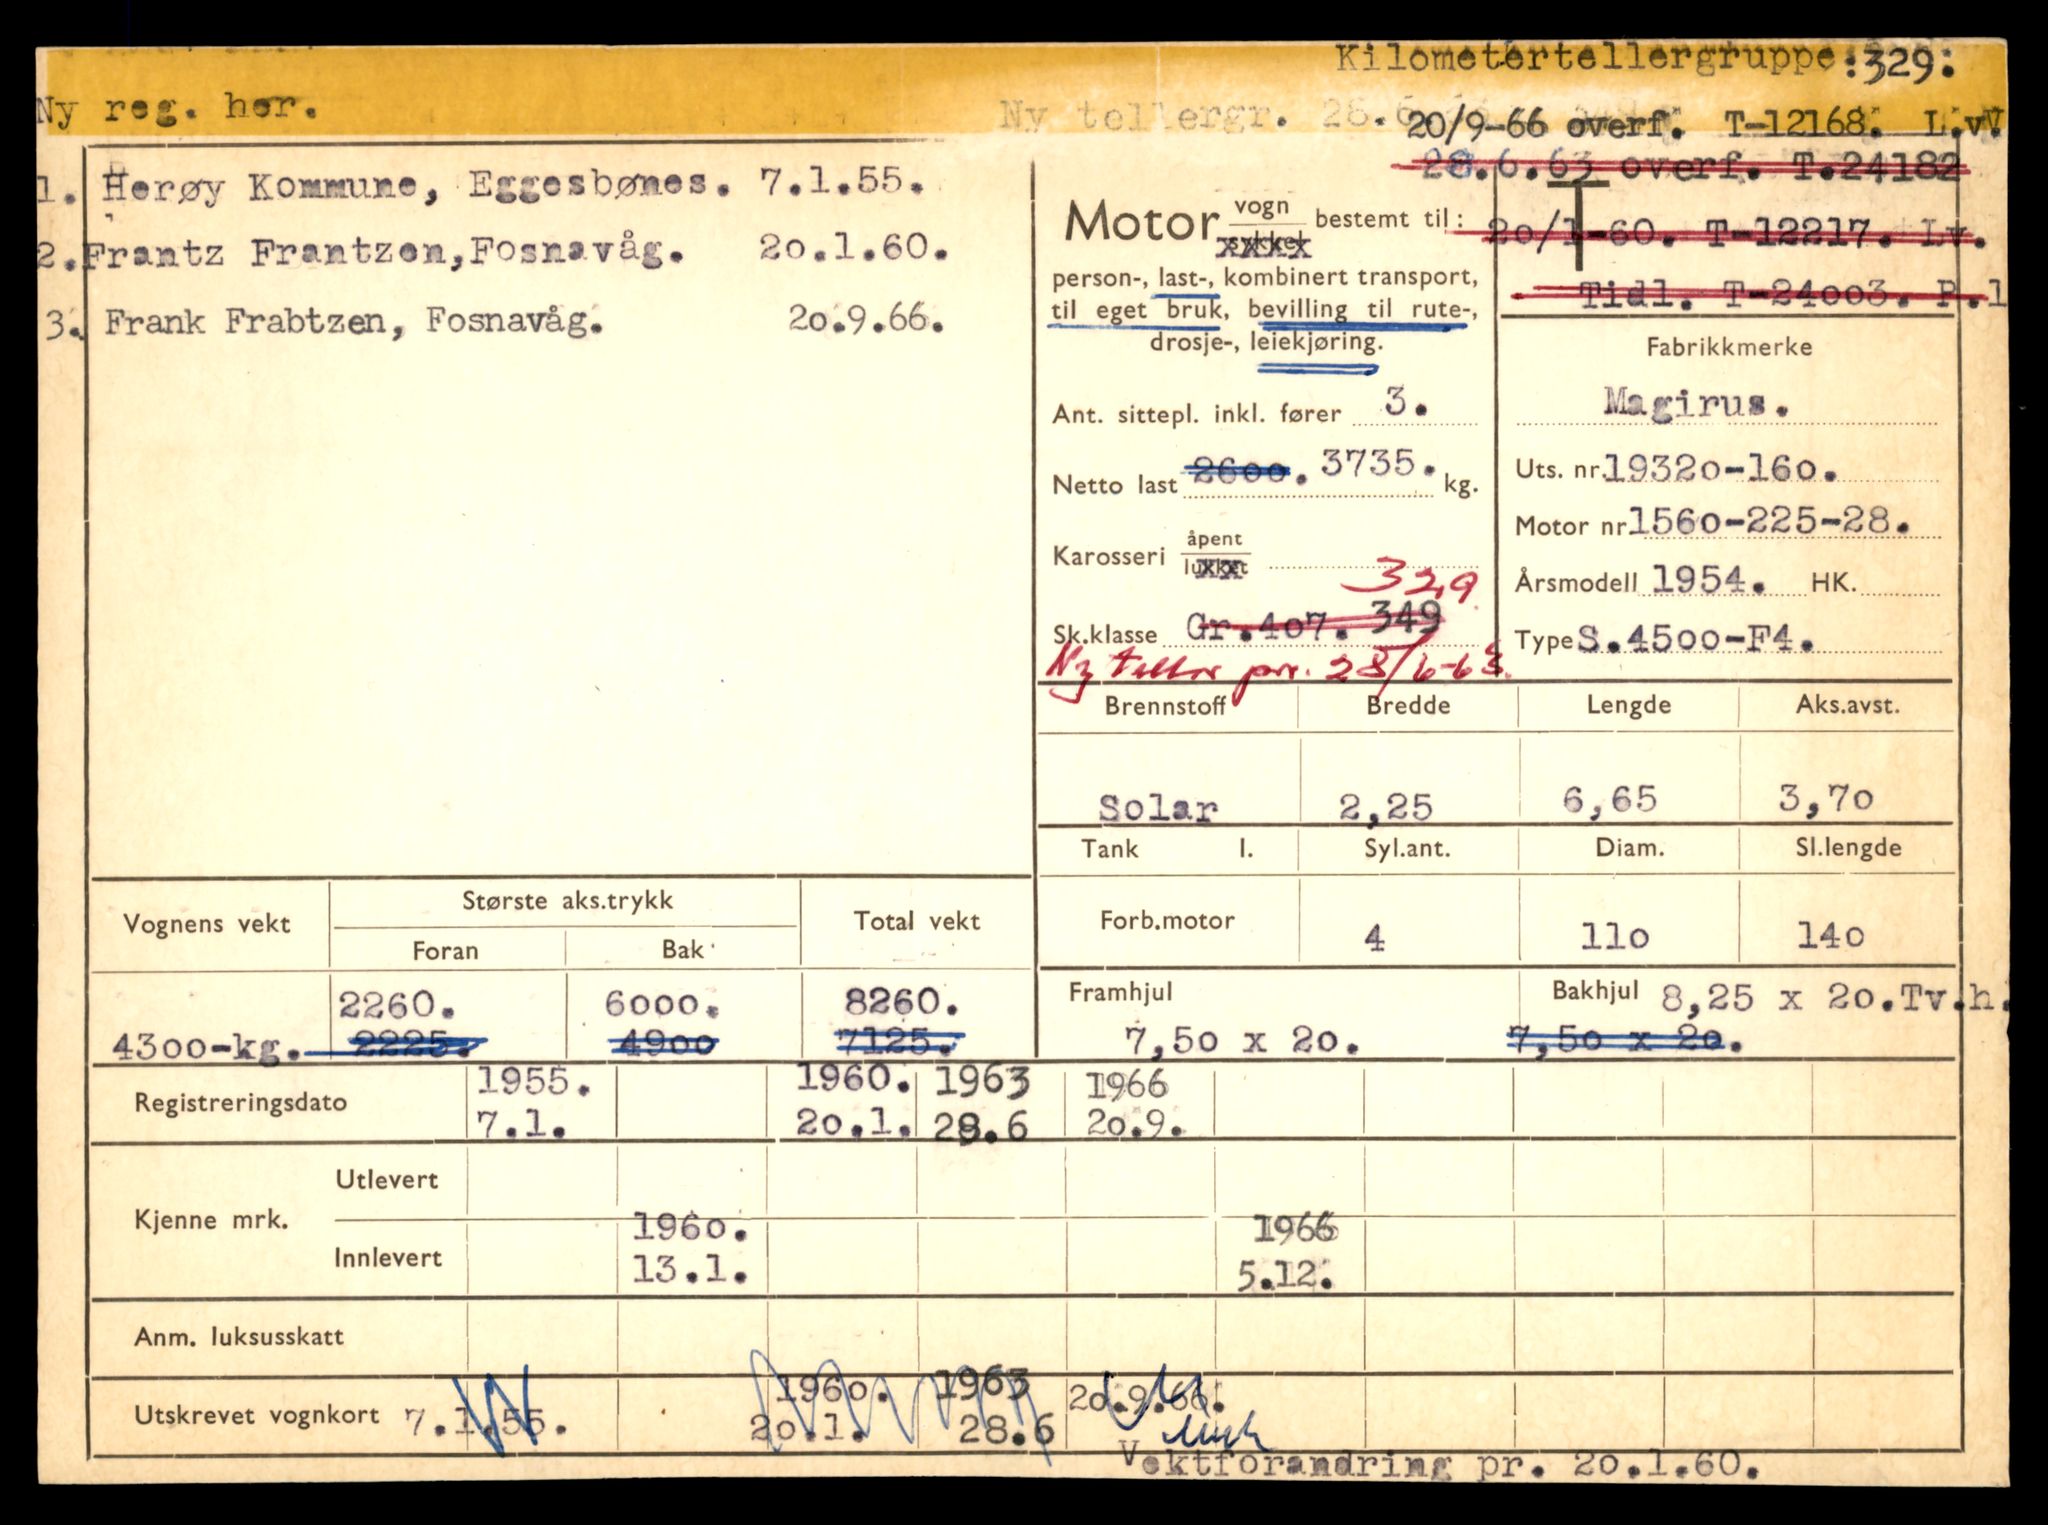 Kilometertellergruppe:329:
Ny reg. her.
Ny tellergr. 28.6
20/9-66 overf. T-12168. L.v.
28.6.63 overf. T.24182
20/1-60. T-12217. Lv.
Tidl. T-24003. P.l
1. Herøy Kommune, Eggesbønes. 7.1.55.
2. Frantz Frantzen, Fosnavåg. 20.1.60.
3. Frank Frabtzen, Fosnavåg. 20.9.66.
Motor vogn sykkel bestemt til:
person-, last-, kombinert transport,
til eget bruk, bevilling til rute-,
drosje-, leiekjøring.
Ant. sittepl. inkl. fører 3.
Netto last 2600. 3735. kg.
Karosseri åpent lukket
329
Sk.klasse Gr.407. 349
Ny teller pr. 28/6-63.
Fabrikkmerke
Magirus.
Uts. nr. 19320-160.
Motor nr 1560-225-28.
Årsmodell 1954. HK.
Type S.4500-F4.
Brennstoff Bredde Lengde Aks.avst.
Solar 2,25 6,65 3,70
Tank l. Syl.ant. Diam. Sl.lengde
Forb.motor 4 110 140
Framhjul Bakhjul 8,25 x 20.Tv.h.
7,50 x 20. 7,50 x 20.
Vognens vekt Største aks.trykk Total vekt
Foran Bak
2260. 6000. 8260.
4300-kg. 2225. 4900 7125.
1955. 1960. 1963 1966
Registreringsdato
7.1. 20.1. 28.6 20.9.
Utlevert
Kjenne mrk.
1960. 1966
Innlevert
13.1. 5.12.
Anm. luksusskatt
1960. 1963 20.9.66.
Utskrevet vognkort 7.1.55. 20.1. 28.6
Vektforandring pr. 20.1.60.